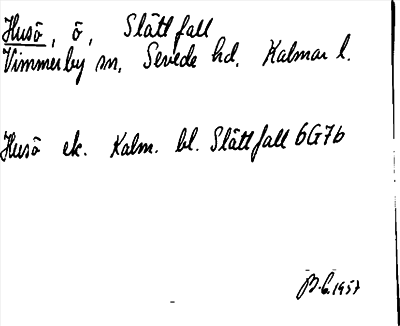 Husö, ö, Slättfall
Vimmerby sn, Sevede hd. Kalmar l.
Husö ek. Kalm. bl. Slättfall 6G7b
B.L. 1957